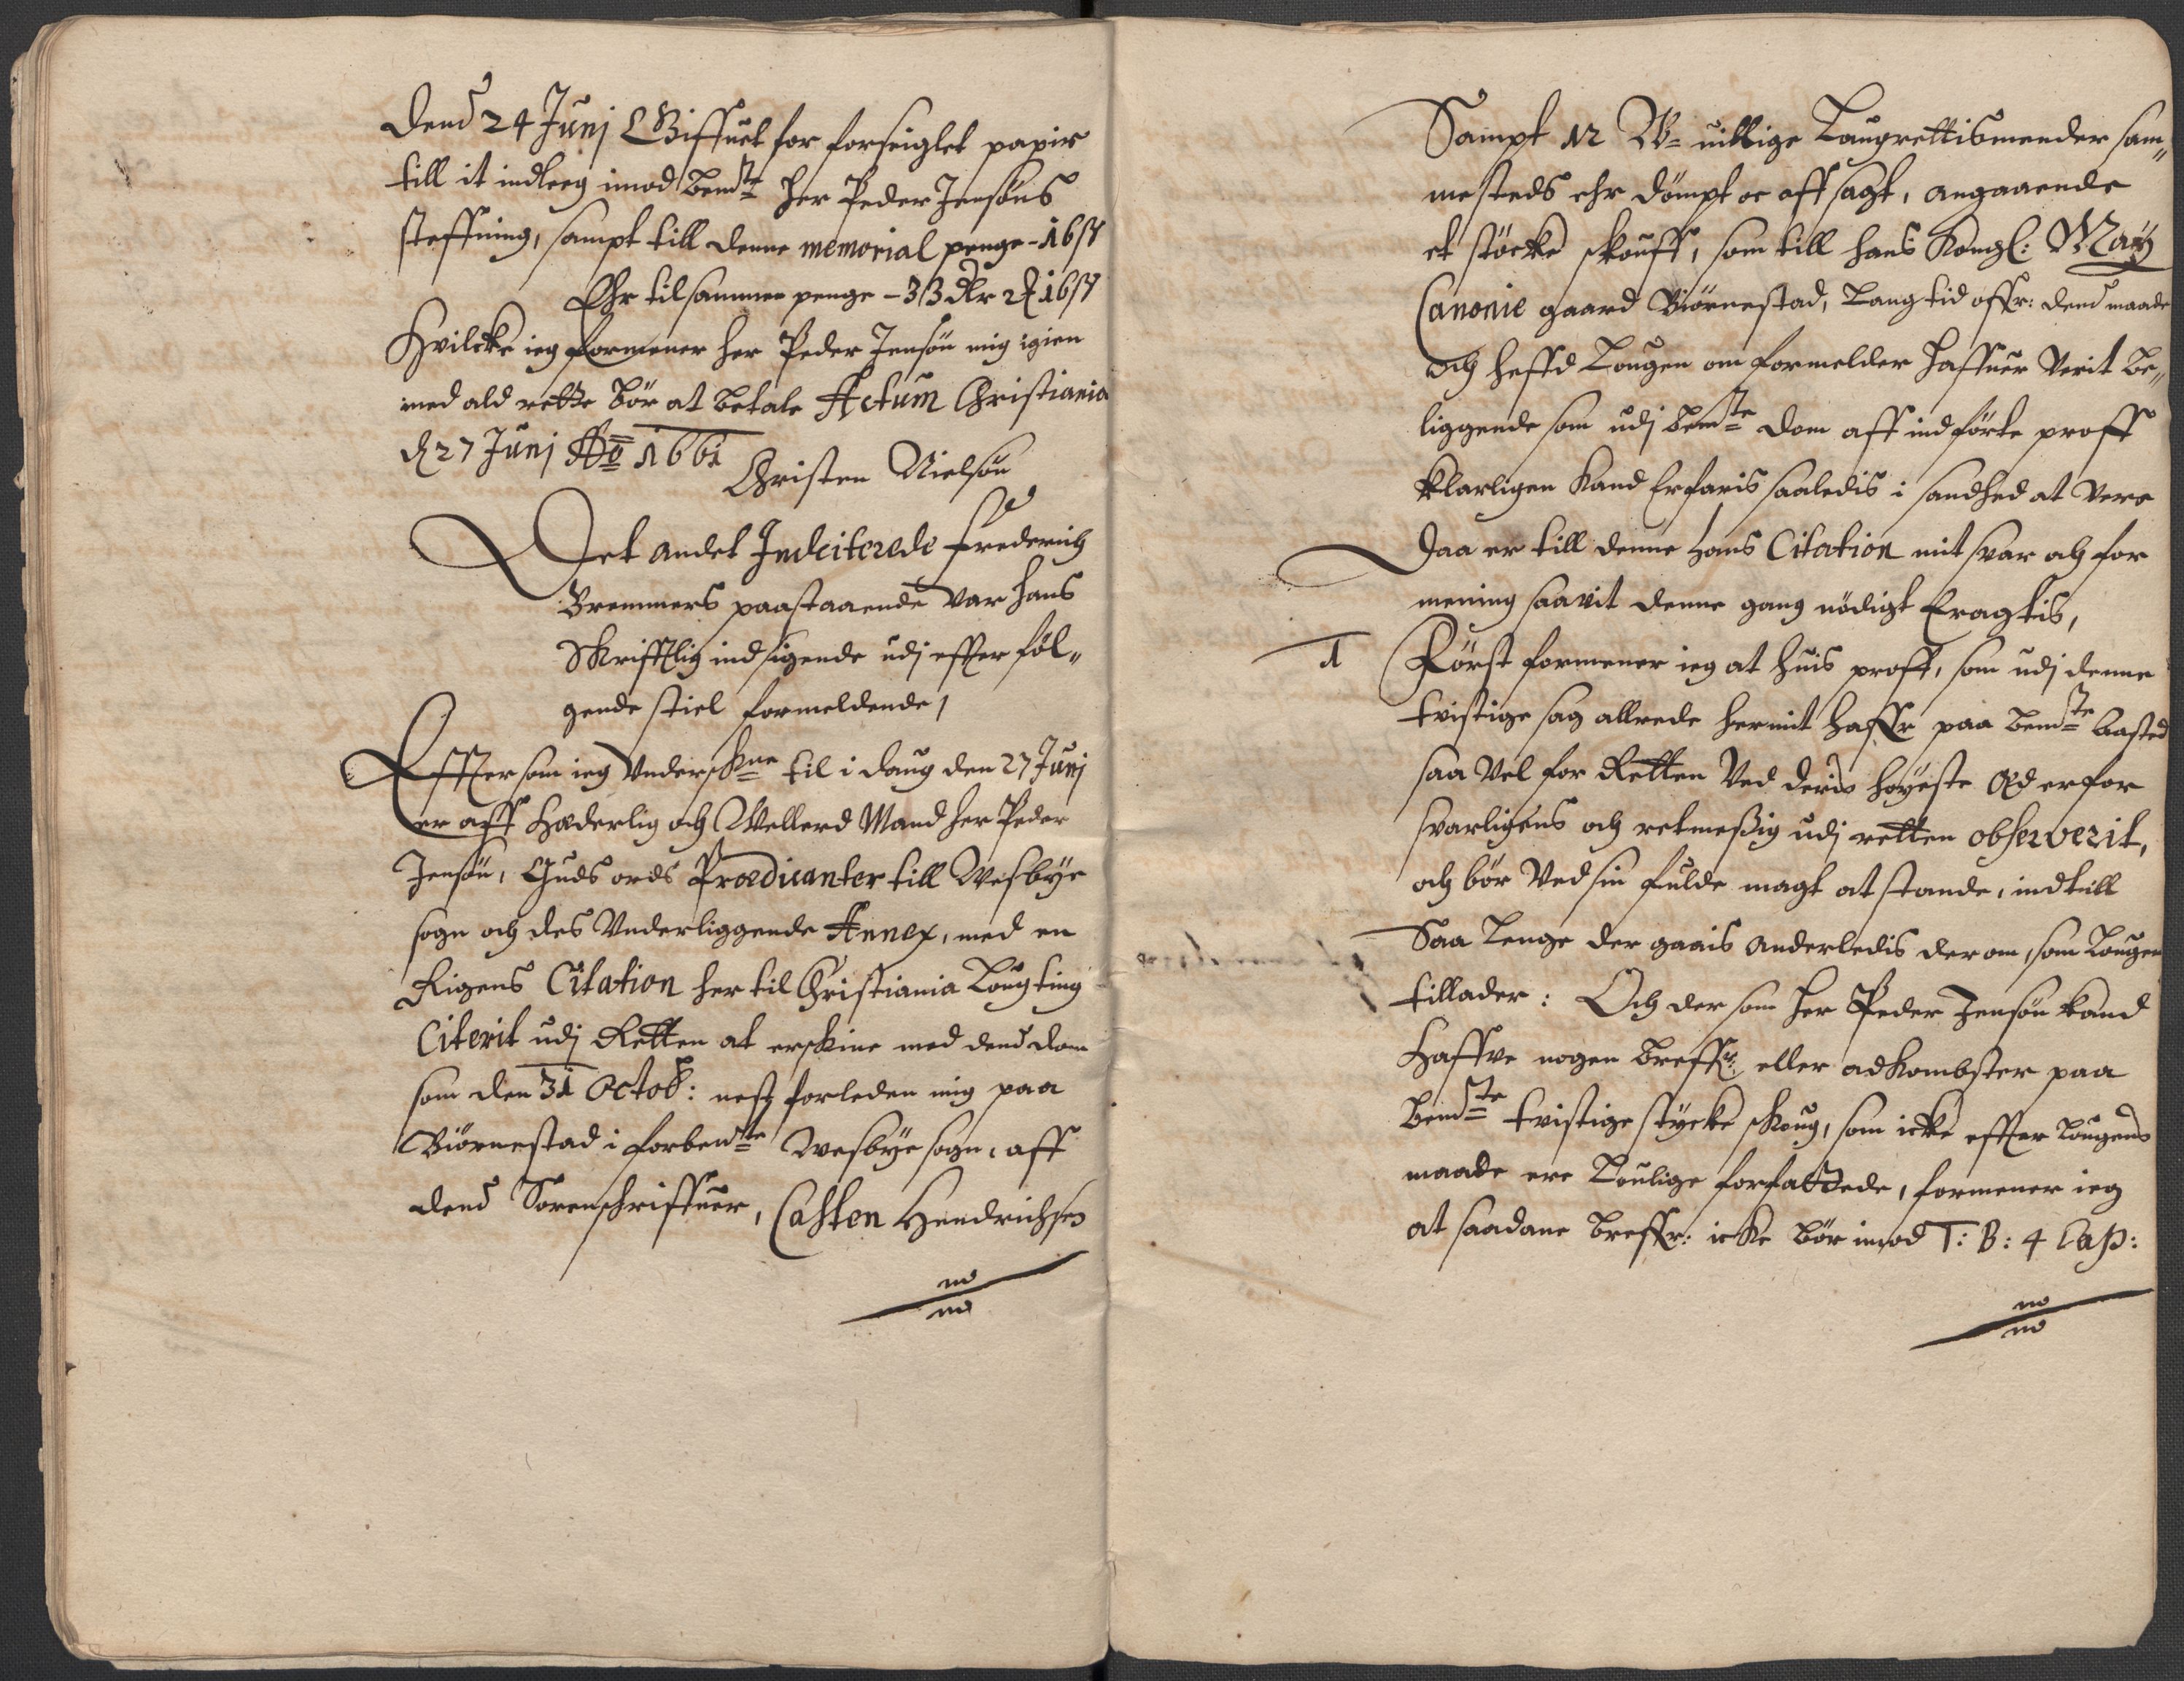 Dend 24 Junj Giffuet for forseiglet papir
till it indleeg imod bemte her Peder Jensøns
steffning, sampt till denne memorial penge - 16 s
Ehr tilsammen penge - 33 dlr 2 16 s
Hvilcke ieg formener her Peder Jensøn mig igien
med ald rette bør at betale Actum Christiania
d 27 Junj Ao 1661
Christen Nielsøn
Det andet Indciterede Frederich
Bremmers paastaaende var hans
Skrifftlig indsigende udj effter føl„
gende stiel formeldende,
Effttersom ieg Underskne til i daug den 27 Junj
er aff Hæderlig och Wellerd Mand her Peder
Jensøn, Guds ords Prædicanter till Wesbÿe
sogn och des Underliggende Annex, med en
Rigens Citation her til Christiania Lougting
Citerit udj Retten at erskine med dend dom
som den 31 Octob: nest forleden mig paa
Biørnestad i forbemte Wesbÿe sogn, aff
dend Sorenschriffuer, Casten Hendrichsen
Sampt 12 W= uillige Laugrettismender sam„
mesteds ehr dømpt oc affsagt, angaaende
et støcke skouff, som till hans Kongl: Maÿ
Canonie gaard Biørnestad, Lang tid effter: dend maade
och heffd Lougen om formelder haffuer verit be„
liggende som udj bemte dom aff indførte proff
klarligen kand Erfaris saaledis i sandhed at vere
Daa er till denne hans Citation mit svar och for
mening saavit denne gang nødigt Eragtis,
1 Først formener ieg at huis proff, som udj denne
tvistige sag allrede hermit haffr paa bemte Aasted
saa vel for Retten ved deris høÿeste Æd erfor
svarligens och retmeßig udj retten observerit,
och bør ved sin fulde magt at stande, indtill
Saa lenge der gaais anderledis der om, som Lougen
tillader: Och dersom her Peder Jensøn kand
Haffve nogen breffr: eller adkombster paa
bemte tvistige stÿcke skoug, som icke effter lougens
maade ere Loulige forfattede, formener ieg
at saadane breffr: icke bør imod T: B: 4 Cap: